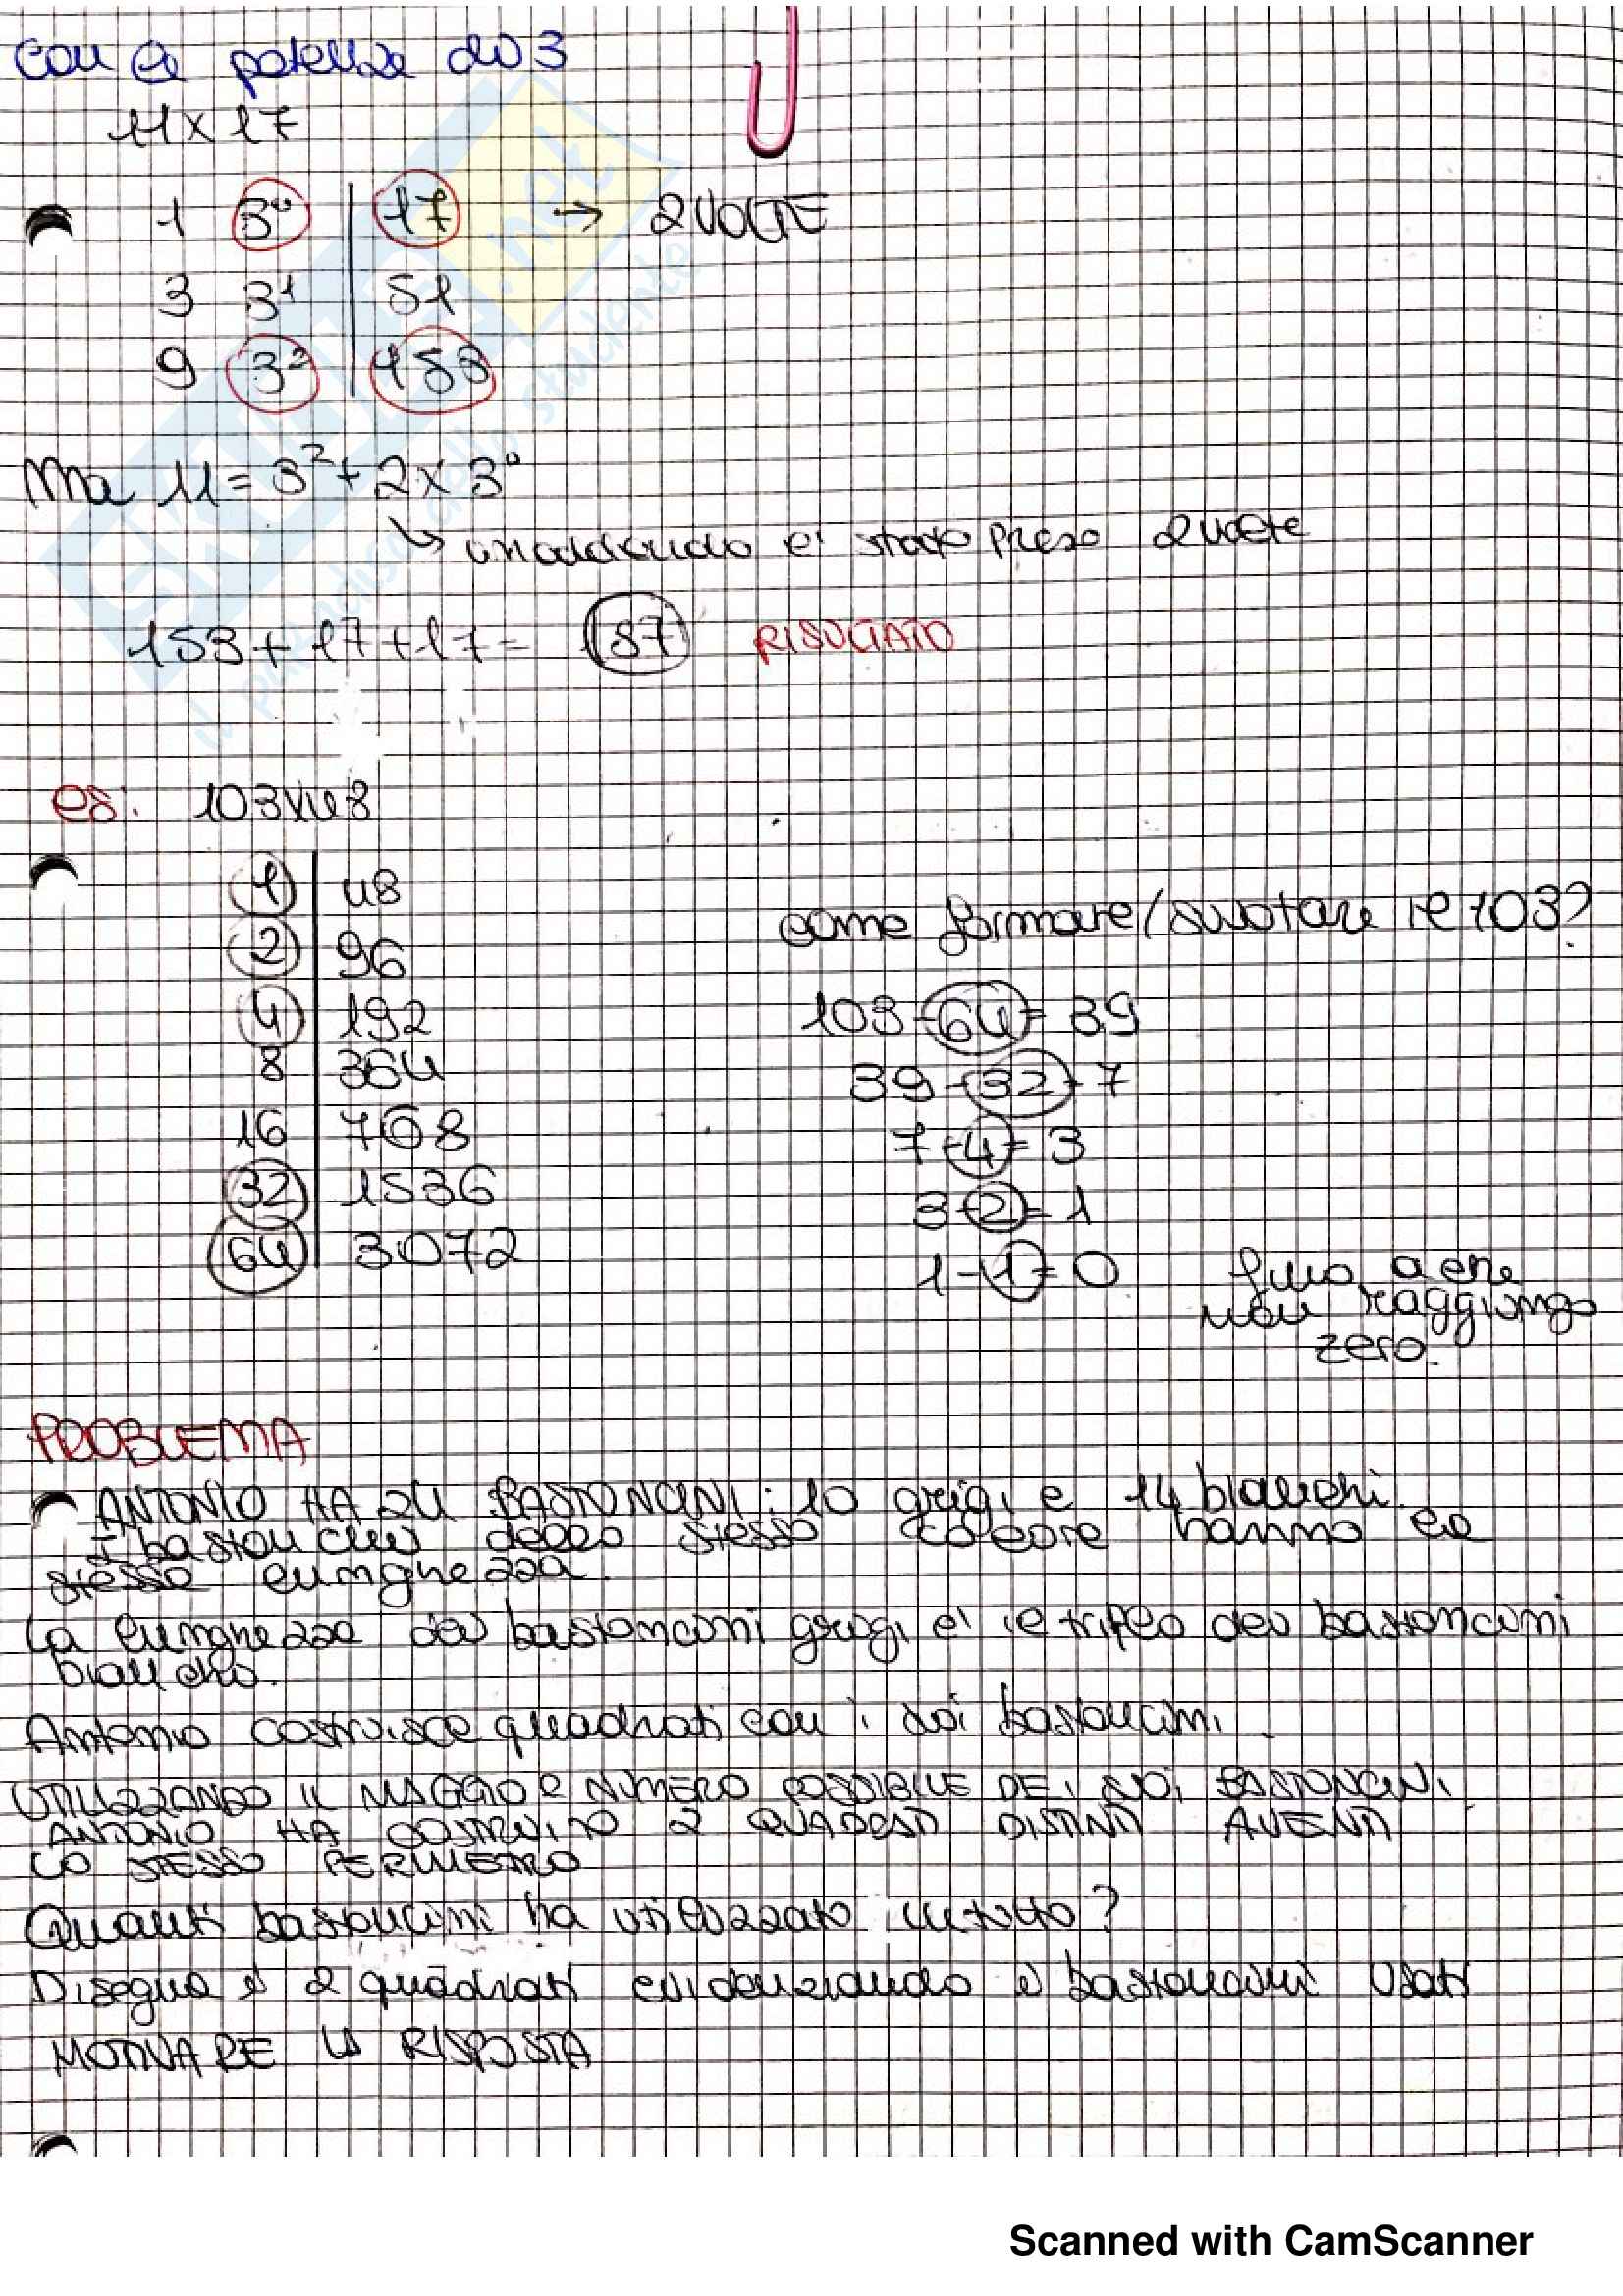 con la potenza di 3
11 x 17
1 3⁰ | 17 → 2 VOLTE
3 3¹ | 51
9 3² | 153
Ma 11 = 3² + 2 x 3⁰
↳ un addendo e' stato preso 2 volte
153 + 17 + 17 = 187 RISULTATO
es: 103x48
1 | 48
2 | 96
4 | 192
8 | 364
16 | 768
32 | 1536
64 | 3072
come formare/svuotare il 103?
103-64= 39
39-32=7
7-4= 3
3-2= 1
1-1= 0
fino a che
non raggiungo
zero.
PROBLEMA
ANTONIO HA 24 BASTONCINI: 10 grigi e 14 bianchi.
I bastoncini dello stesso colore hanno la
stessa lunghezza.
La lunghezza dei bastoncini grigi e' il triplo dei bastoncini
bianchi.
Antonio costruisce quadrati con i suoi bastoncini.
UTILIZZANDO IL MAGGIOR NUMERO POSSIBILE DEI SUOI BASTONCINI
ANTONIO HA COSTRUITO 2 QUADRATI DISTINTI AVENTI
LO STESSO PERIMETRO
Quanti bastoncini ha utilizzato in tutto?
Disegna i 2 quadrati evidenziando i bastoncini usati
MOTIVARE LA RISPOSTA
SKUOLA.net
il paradiso dello studente
Scanned with CamScanner